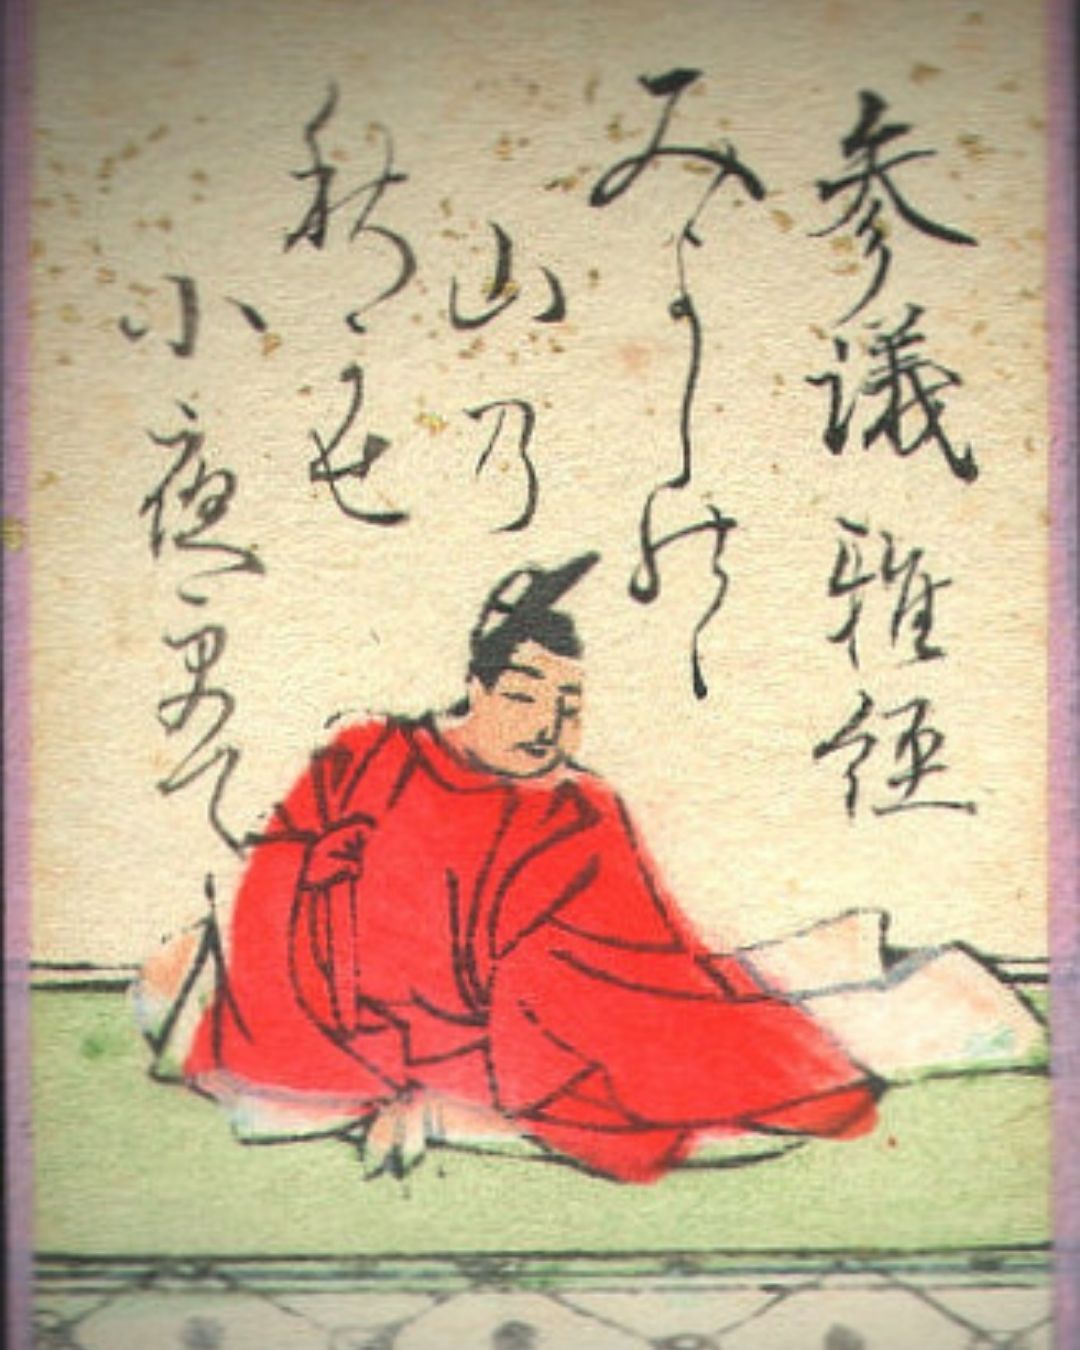 参議雅経
みよし野の
山乃
秋風
小夜更て